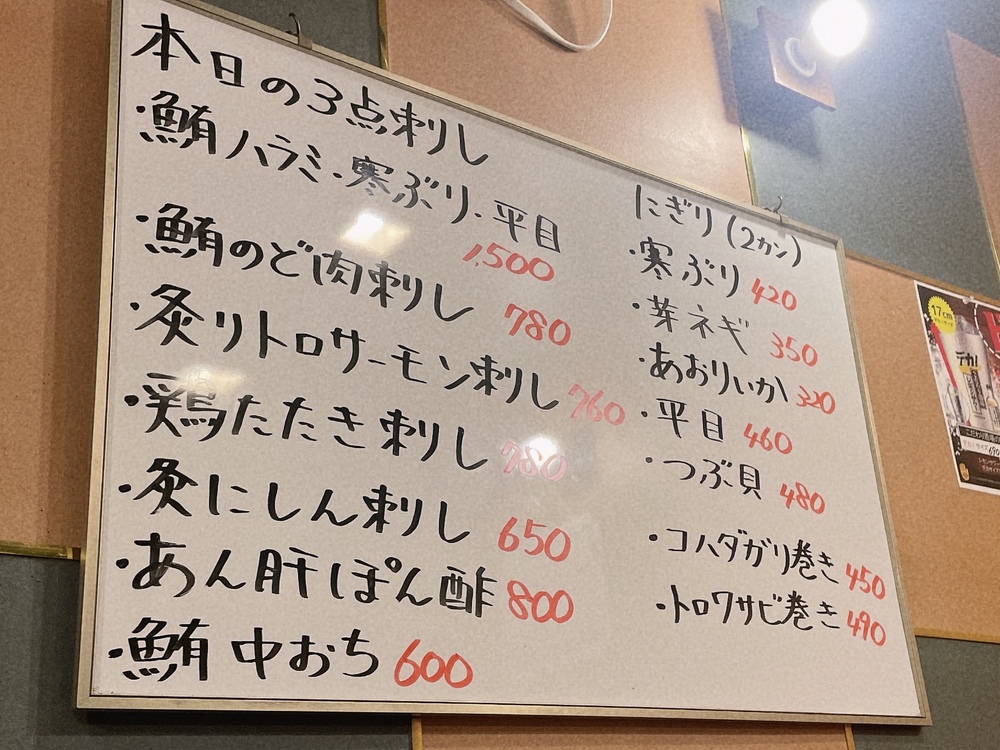 本日の3点刺し
・鮪ハラミ・寒ぶり・平目
1,500
・鮪のど肉刺し 780
・炙りトロサーモン刺し 760
・鶏たたき刺し 780
・炙にしん刺し 650
・あん肝ぽん酢 800
・鮪中おち 600
にぎり(2カン)
・寒ぶり 420
・芽ネギ 350
・あおりいか 320
・平目 460
・つぶ貝 480
・コハダガリ巻き 450
・トロワサビ巻き 490
17cm
デカ!